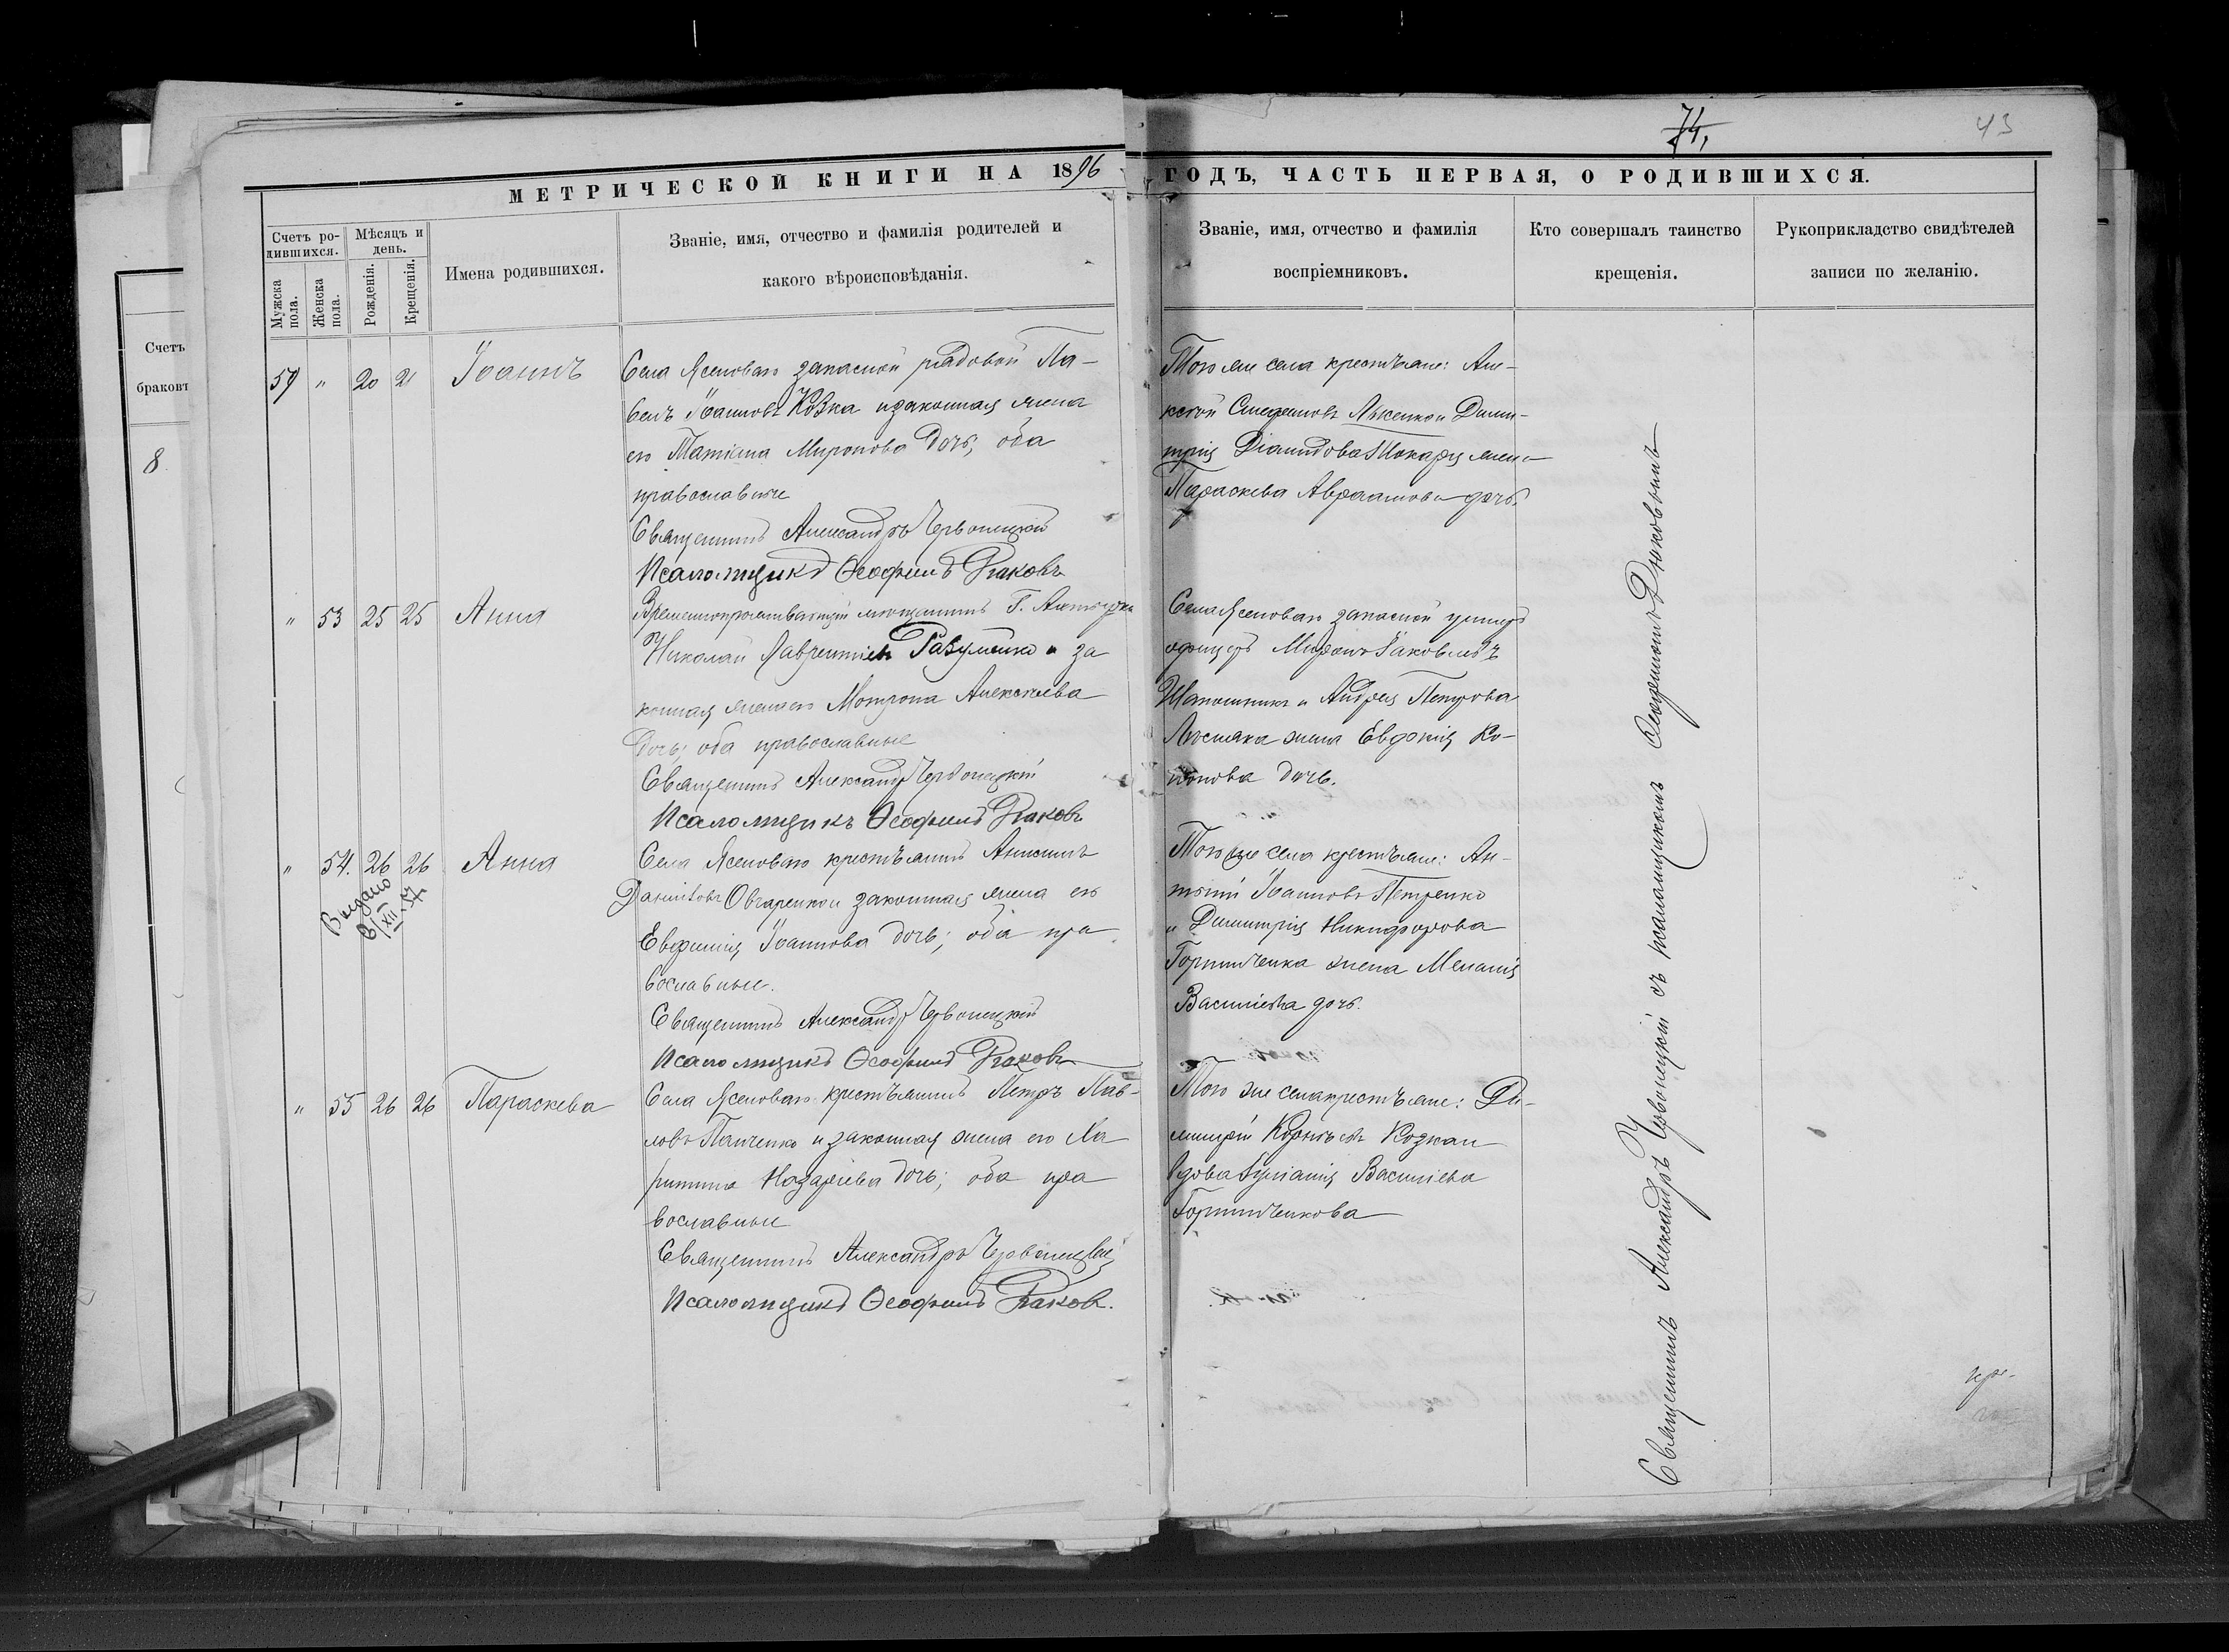 74,
43
МЕТРИЧЕСКОЙ КНИГИ НА 1896
ГОДЪ, ЧАСТЬ ПЕРВАЯ, О РОДИВШИХСЯ.
Счетъ
браковъ
8
Счетъ ро-
дившихся.
Мужска
пола.
Женска
пола.
Мѣсяцъ и
день.
Рожденія.
Крещенія.
Имена родившихся.
Званіе, имя, отчество и фамилія родителей и
какого вѣроисповѣданія.
Званіе, имя, отчество и фамилія
воспріемниковъ.
Кто совершалъ таинство
крещенія.
Рукоприкладство свидѣтелей
записи по желанію.
59 " 20 21 Іоаннъ
Села Ясеноваго запасной рядовой Па-
велъ Іоанновъ Козка и законная жена
его Татіана Миронова дочь, оба
православные
Священникъ Александръ Червонецкій
Псаломщикъ Ѳеофилъ
Того же села крестьяне: Але-
ксѣй Стефановъ Лысенко и Дими-
трія жена
Параскева Авраамова дочь.
" 53 25 25 Анна
Временнопроживающій мѣщанинъ Г.
Николай Лаврентіевъ Разуменко и за
конная жена его Мотрона Алексѣева
дочь; оба православные
Священникъ Александръ Червонецкій
Псаломщикъ Ѳеофилъ
Села Ясеноваго запасной унтеръ
офицеръ Миронъ Іаковлевъ
и Андрея Петрова
жена Евдокія Ко-
нонова дочь.
" 54. 26 26 Анна
Выдано
6/XII 57
Села Ясеноваго крестьянинъ Анисимъ
Даніиловъ Овчаренко и законная жена его
Евфимія Іоаннова дочь; оба пра
вославные.
Священникъ Александръ Червонецкій
Псаломщикъ Ѳеофилъ
Того же села крестьяне: Ан-
тоній Іоанновъ Петренко
и Димитрія Никифорова
жена Меланія
Василіева дочь.
" 55 26 26 Параскева
Села Ясеноваго крестьянинъ Петръ Пав-
ловъ Панченко и законная жена его Ха
ритина Назаріева дочь; оба пра
вославные
Священникъ Александръ Червонецкій
Псаломщикъ Ѳеофилъ
Того же села крестьяне: Ди-
митрій Корніевъ Козка и
вдова Іуліанія Василіева
Священникъ Александръ Червонецкій съ псаломщикомъ Ѳеофиломъ